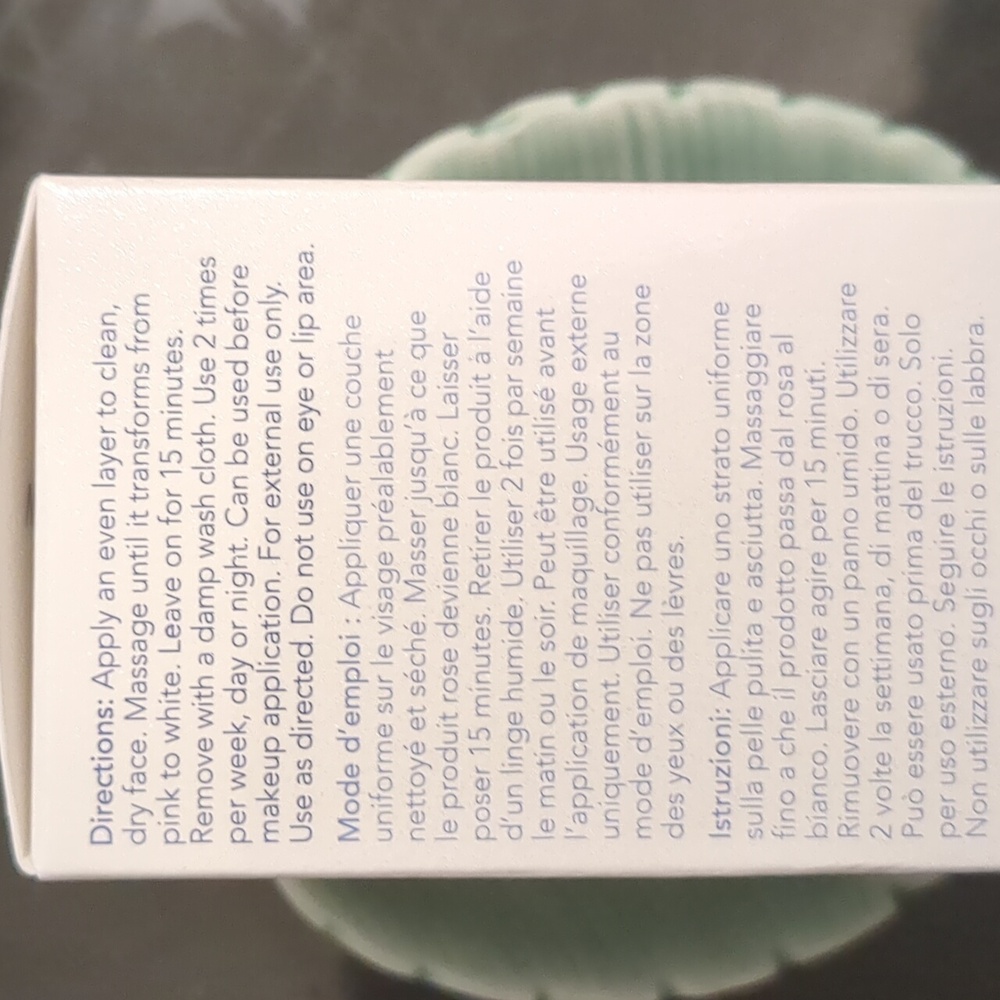 Directions: Apply an even layer to clean,
dry face. Massage until it transforms from
pink to white. Leave on for 15 minutes.
Remove with a damp wash cloth. Use 2 times
per week, day or night. Can be used before
makeup application. For external use only.
Use as directed. Do not use on eye or lip area.
Mode d'emploi : Appliquer une couche
uniforme sur le visage préalablement
nettoyé et séché. Masser jusqu'à ce que
le produit rose devienne blanc. Laisser
poser 15 minutes. Retirer le produit à l'aide
d'un linge humide. Utiliser 2 fois par semaine
le matin ou le soir. Peut être utilisé avant
l'application de maquillage. Usage externe
uniquement. Utiliser conformément au
mode d'emploi. Ne pas utiliser sur la zone
des yeux ou des lèvres.
Istruzioni: Applicare uno strato uniforme
sulla pelle pulita e asciutta. Massaggiare
fino a che il prodotto passa dal rosa al
bianco. Lasciare agire per 15 minuti.
Rimuovere con un panno umido. Utilizzare
2 volte la settimana, di mattina o di sera.
Può essere usato prima del trucco. Solo
per uso esterno. Seguire le istruzioni.
Non utilizzare sugli occhi o sulle labbra.